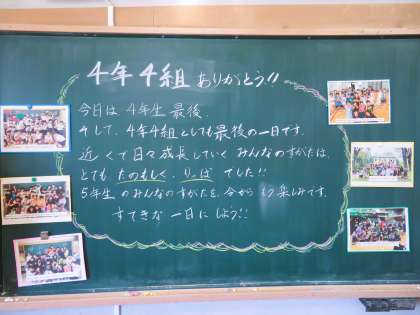 4年4組 ありがとう!!
今日は 4年生 最後。
そして、4年4組としても最後の一日です。
近くで日々成長していく みんなのすがたは、
とても たのもしく、りっぱ でした!!
5年生 のみんなのすがたを、今から もう楽しみです。
すてきな 一日に しよう!!